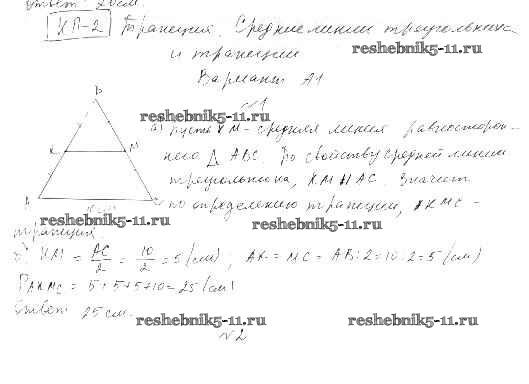 Ответ: 20 см.
КП-2 Трапеция. Средние линии треугольника
и трапеции
reshebnik5-11.ru
Вариант А1
reshebnik5-11.ru
№1
B
а) Пусть KM - средняя линия равносторон-
него Δ ABC. По свойству средней линии
K M
треугольника, KM || AC. Значит
A C
10 см
по определению трапеции, AKMC -
reshebnik5-11.ru reshebnik5-11.ru
трапеция
б) KM = AC/2 = 10/2 = 5 (см); AK = MC = AB : 2 = 10 : 2 = 5 (см)
P AKMC = 5+5+5+10 = 25 (см)
Ответ: 25 см.
reshebnik5-11.ru reshebnik5-11.ru
№2